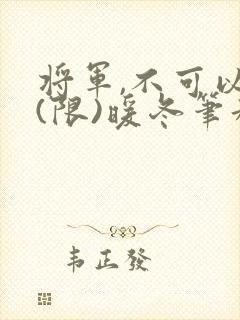 將軍,不可以
(限)暖冬筆
韦正發